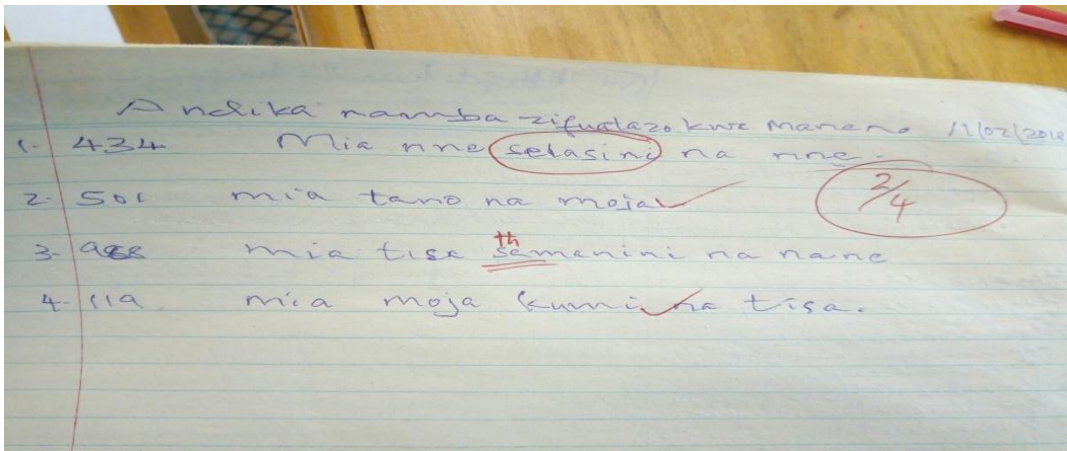 Andika namba zifuatazo kwa maneno 11/02/2018
1. 434 Mia nne selasini na nne.
2/4
2. 501 mia tano na moja
th
3. 988 mia tisa samanini na nane
4. 119 mia moja kumi na tisa.